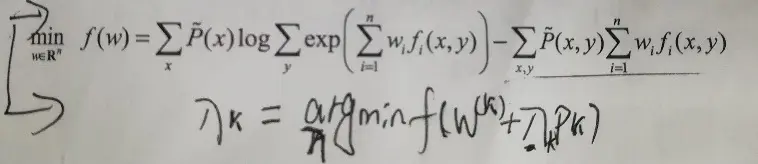 min_{w∈R^n} f(w) = ∑_x P̃(x) log ∑_y exp(∑_{i=1}^n w_i f_i(x, y)) − ∑_{x,y} P̃(x, y) ∑_{i=1}^n w_i f_i(x, y)
λ_K = argmin_λ f(W^{(k)} + λ_k P_K)